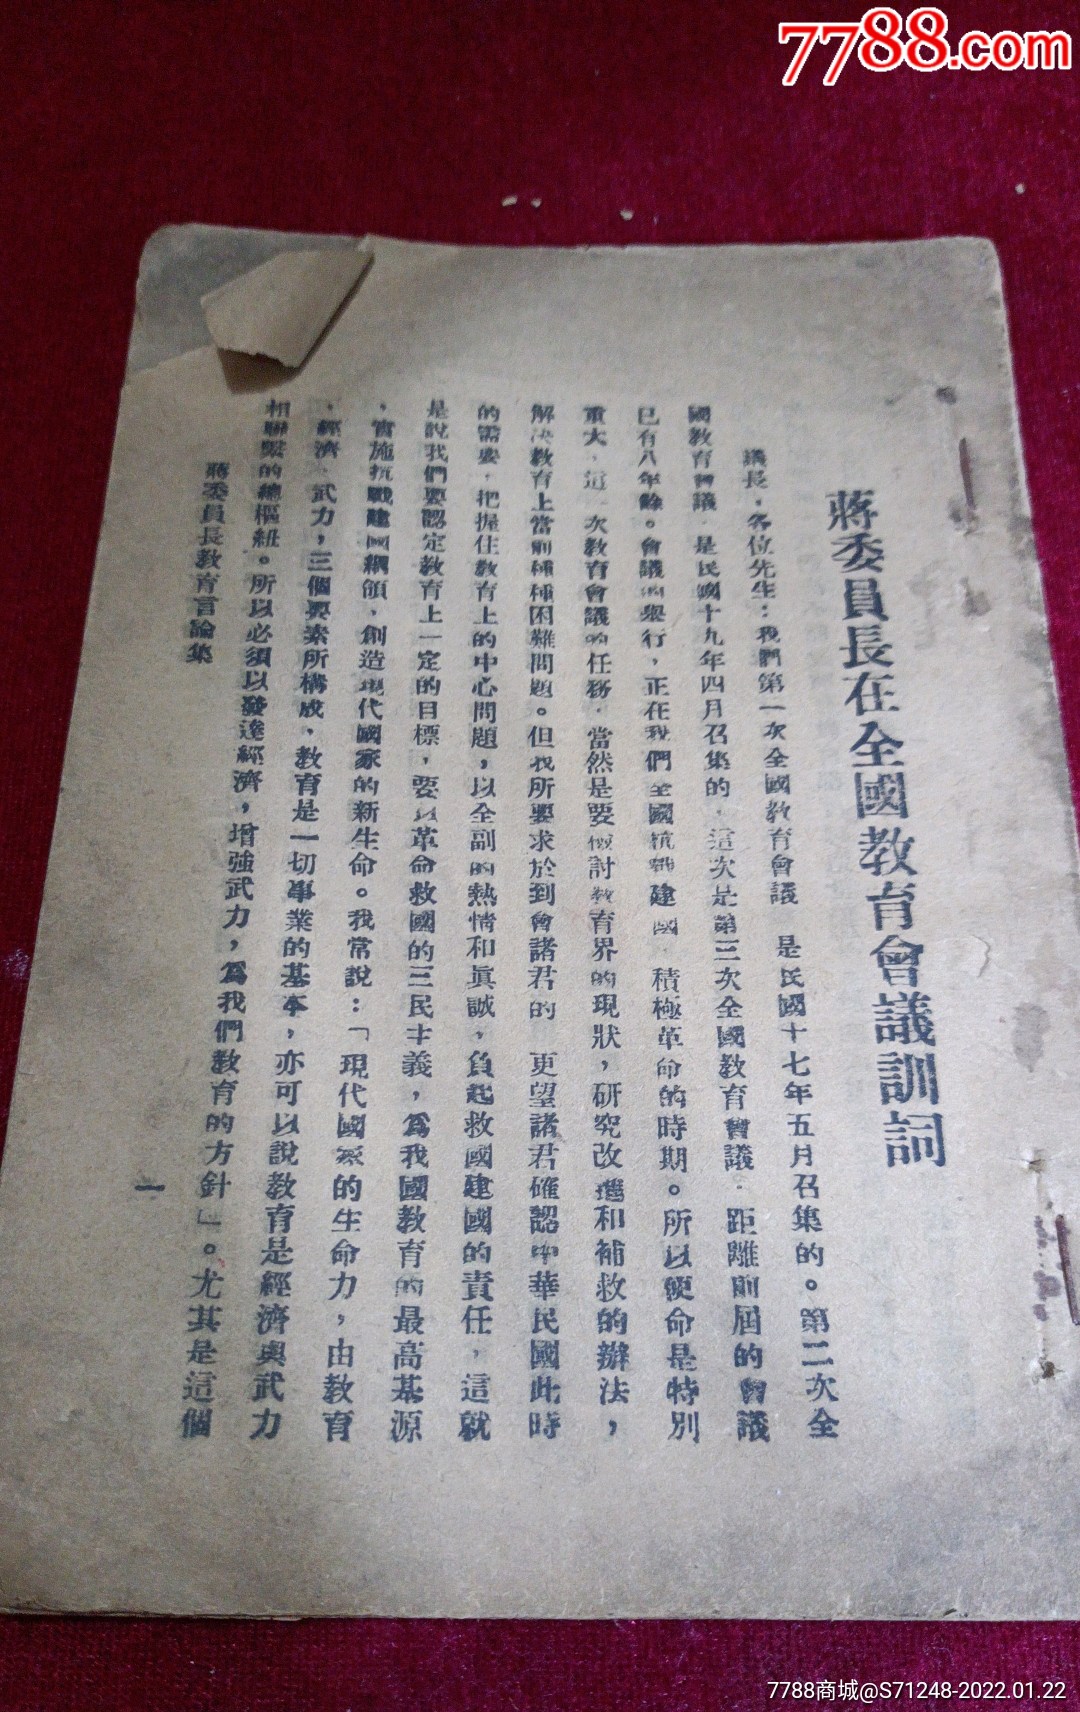 7788.com
蔣委員長在全國教育會議訓詞
議長，各位先生：我們第一次全國教育會議　是民國十七年五月召集的。第二次全
國教育會議，是民國十九年四月召集的，這次是第三次全國教育會議．距離前屆的會議
已有八年餘。會議的舉行，正在我們全國抗戰建國　積極革命的時期。所以使命是特別
重大，這一次教育會議的任務，當然是要檢討教育界的現狀，研究改進和補救的辦法，
解決教育上當前種種困難問題。但我所要求於到會諸君的　更望諸君確認中華民國此時
的需要，把握住教育上的中心問題，以全副的熱情和眞誠，負起救國建國的責任，這就
是說我們要認定教育上一定的目標，要以革命救國的三民主義，爲我國教育的最高基源
，實施抗戰建國綱領，創造現代國家的新生命。我常說：「現代國家的生命力，由教育
，經濟，武力，三個要素所構成，教育是一切事業的基本，亦可以說教育是經濟與武力
相聯繫的總樞紐。所以必須以發達經濟，增強武力，爲我們教育的方針」。尤其是這個
蔣委員長教育言論集
一
7788商城@S71248-2022.01.22